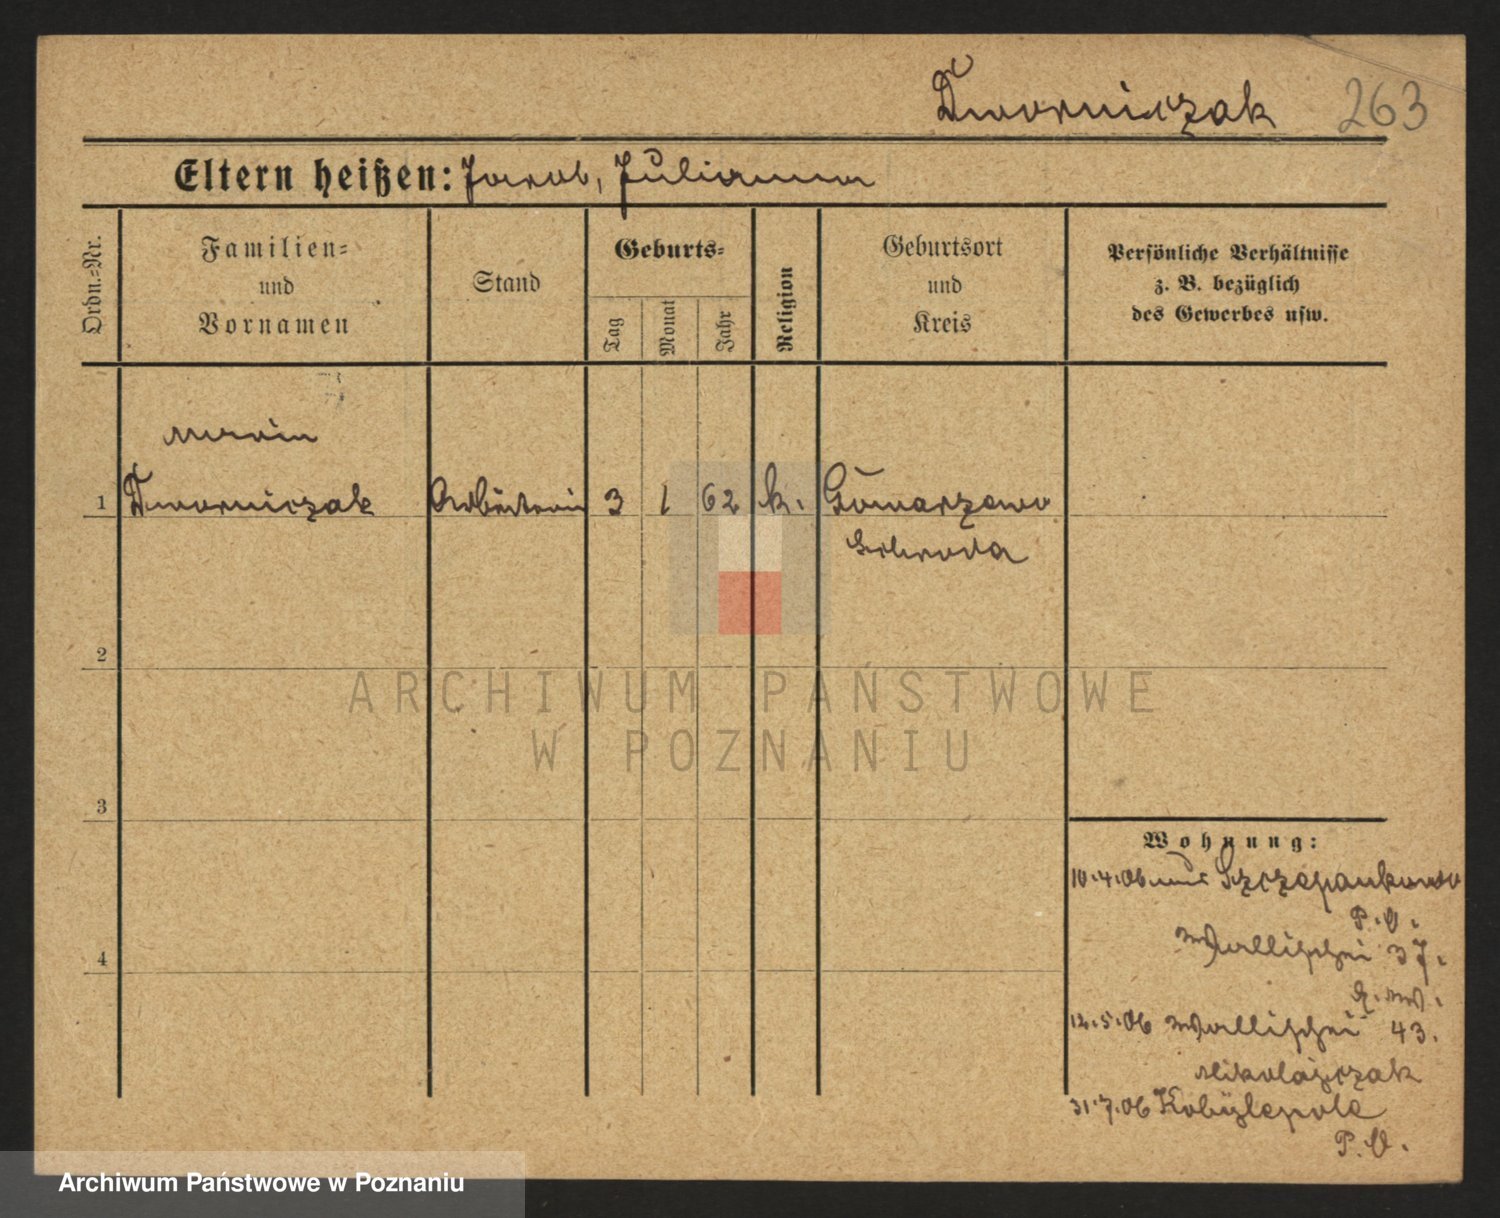 Dworniczak 263
Eltern heißen: Jacob, Julianna
Ordn.-Nr.
Familien-
und
Vornamen
Stand
Geburts-
Tag
Monat
Jahr
Religion
Geburtsort
und
Kreis
Persönliche Verhältnisse
z. B. bezüglich
des Gewerbes usw.
Maria
1 Dworniczak Arbeiterin 3 1 62 k. Gowarzewo
Schroda
2
ARCHIWUM PAŃSTWOWE
W POZNANIU
3
Wohnung:
10.4.06 aus Szczepankowo
P. O.
Wallischei 37.
4
12.5.06 Wallischei 43.
Mikolajczak
31.7.06 Kobylepole
P. O.
Archiwum Państwowe w Poznaniu